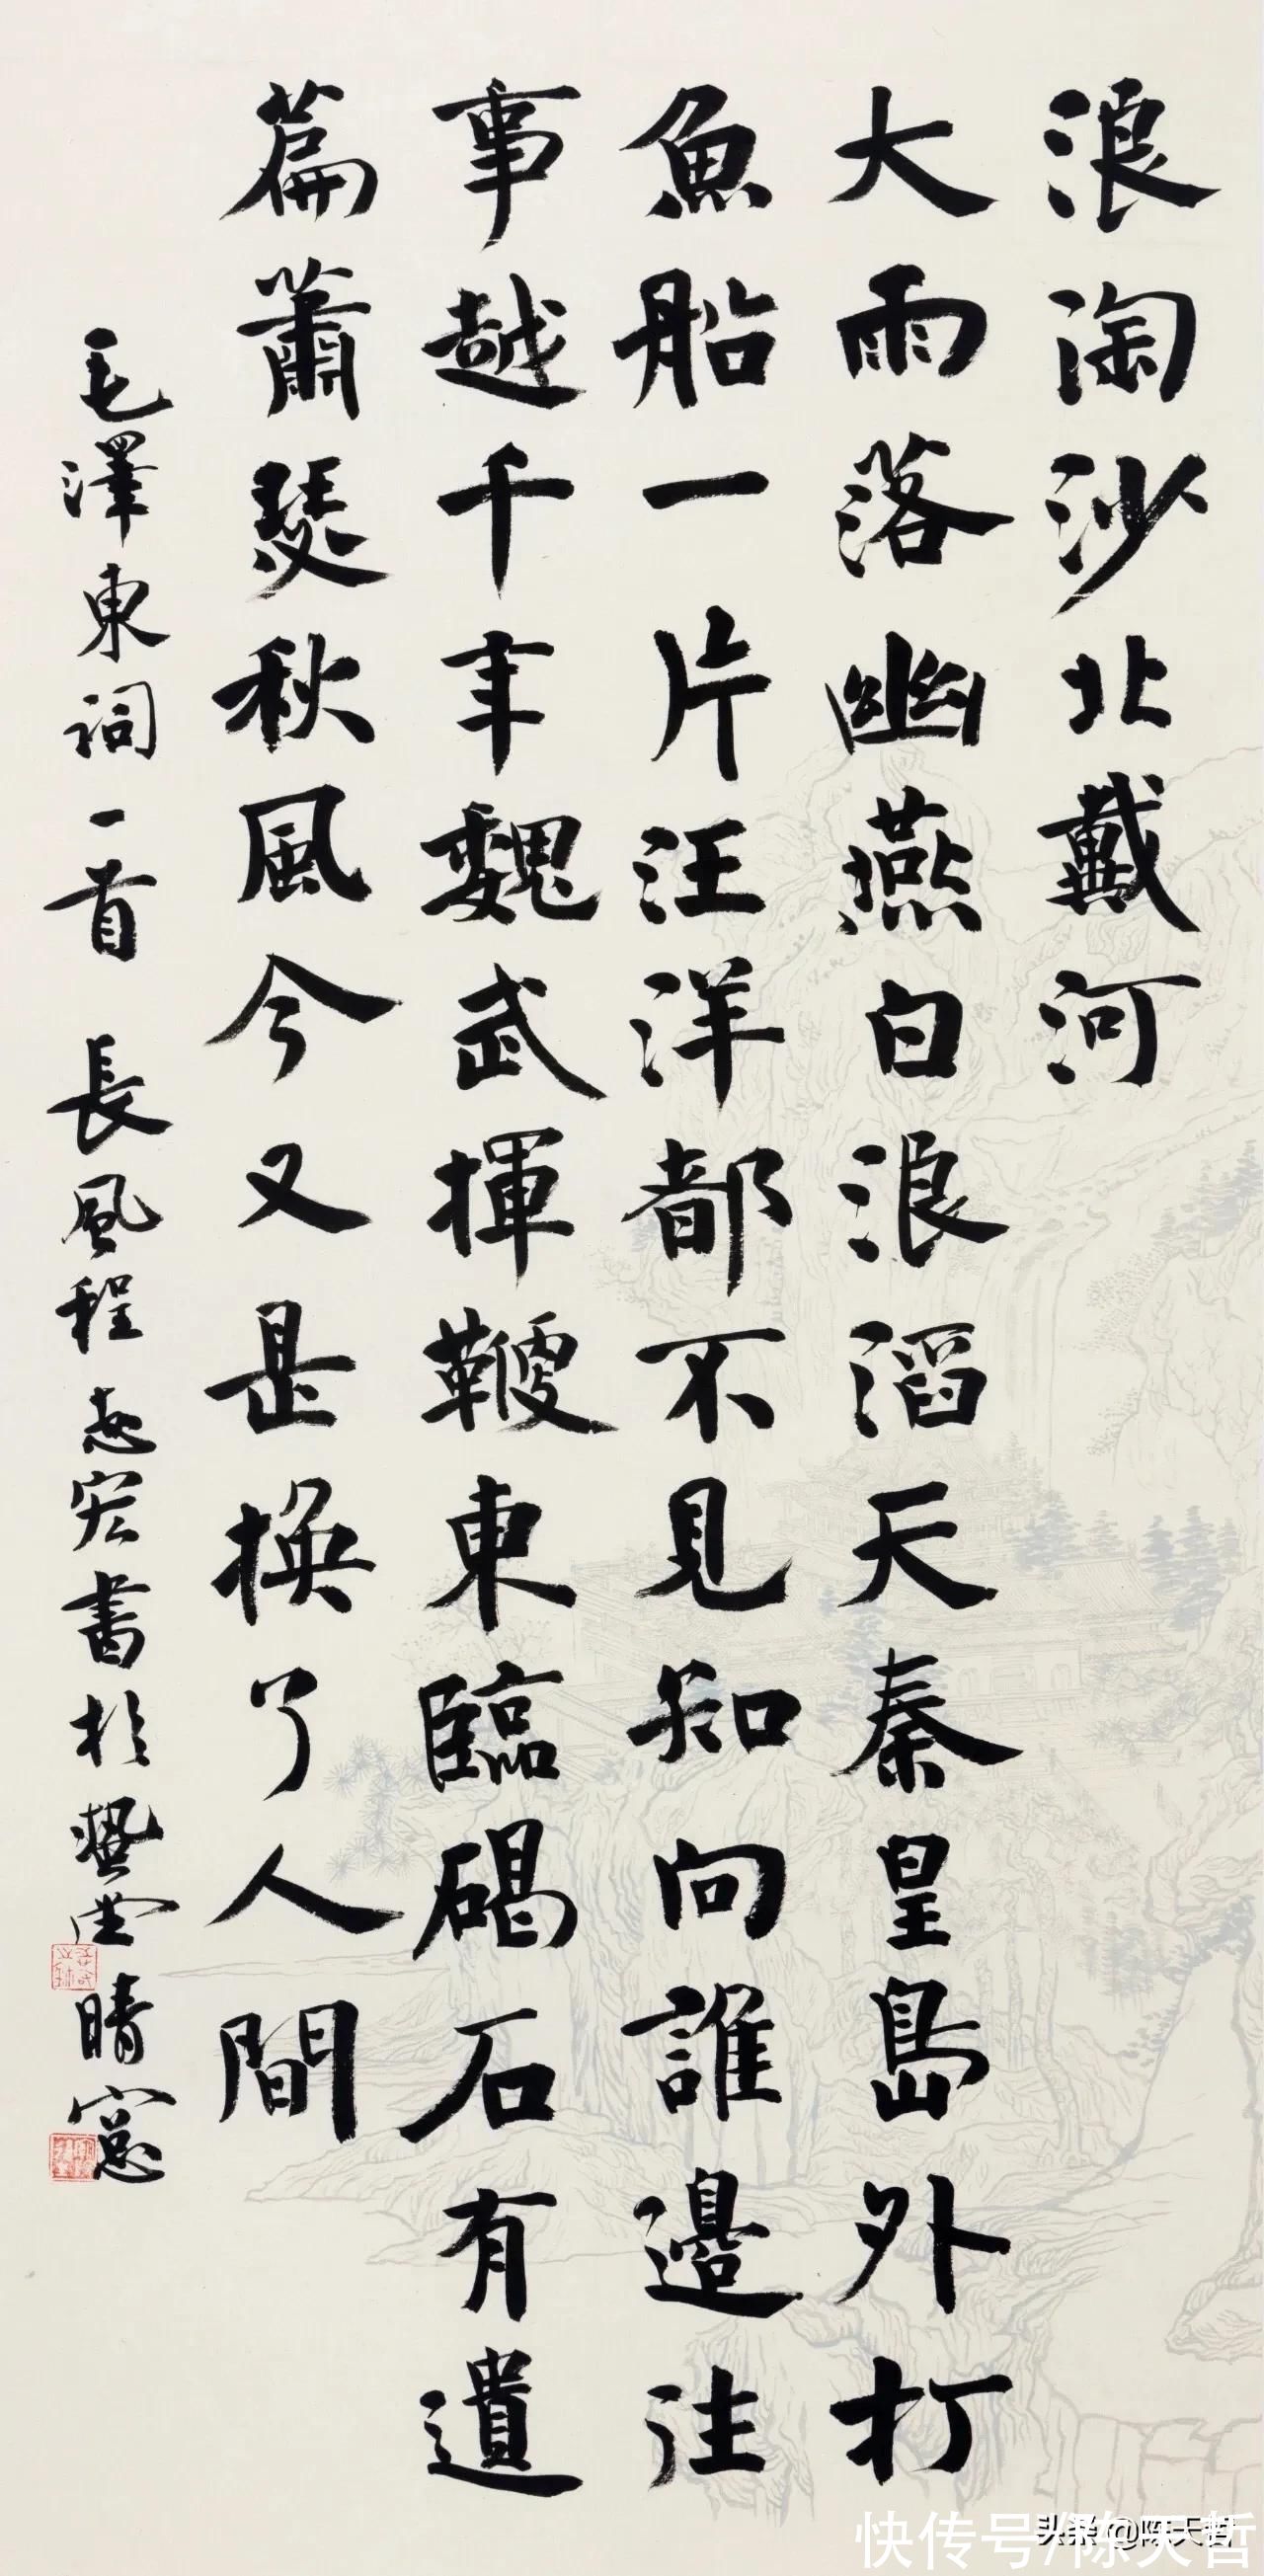 浪淘沙北戴河
大雨落幽燕白浪滔天秦皇島外打
魚船一片汪洋都不見知向誰邊往
事越千年魏武揮鞭東臨碣石有遺
篇蕭瑟秋風今又是換了人間
毛澤東詞一首 長風程志宏書於藝堂晴窗
快传号/陈天哲
头条 @陈天哲